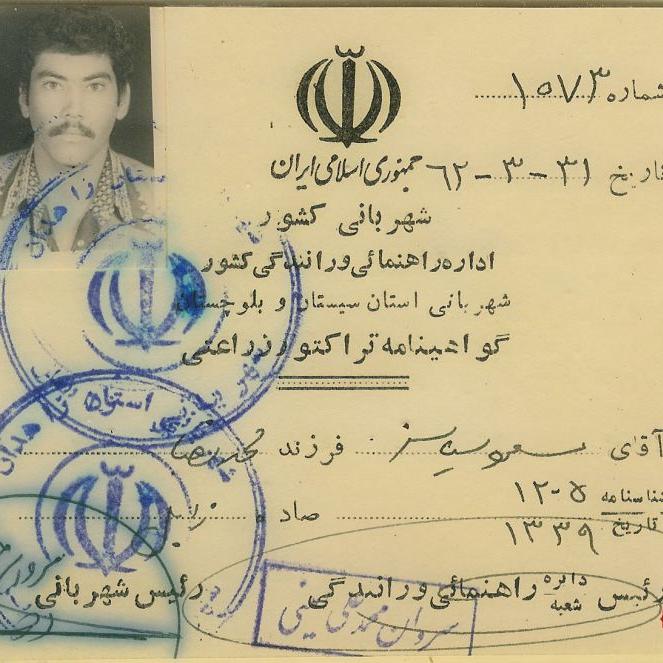 شماره ۱۵۷۳
جمهوری اسلامی ایران
تاریخ ۳۱-۳-۶۲
شهربانی کشور
اداره راهنمائی و رانندگی کشور
شهربانی استان سیستان و بلوچستان
گواهینامه تراکتور زراعتی
آقای فرزند محمدرضا
شناسنامه ۱۲۰۵ صادره
تاریخ ۱۳۳۹
رئیس دایره شعبه راهنمائی و رانندگی رئیس شهربانی